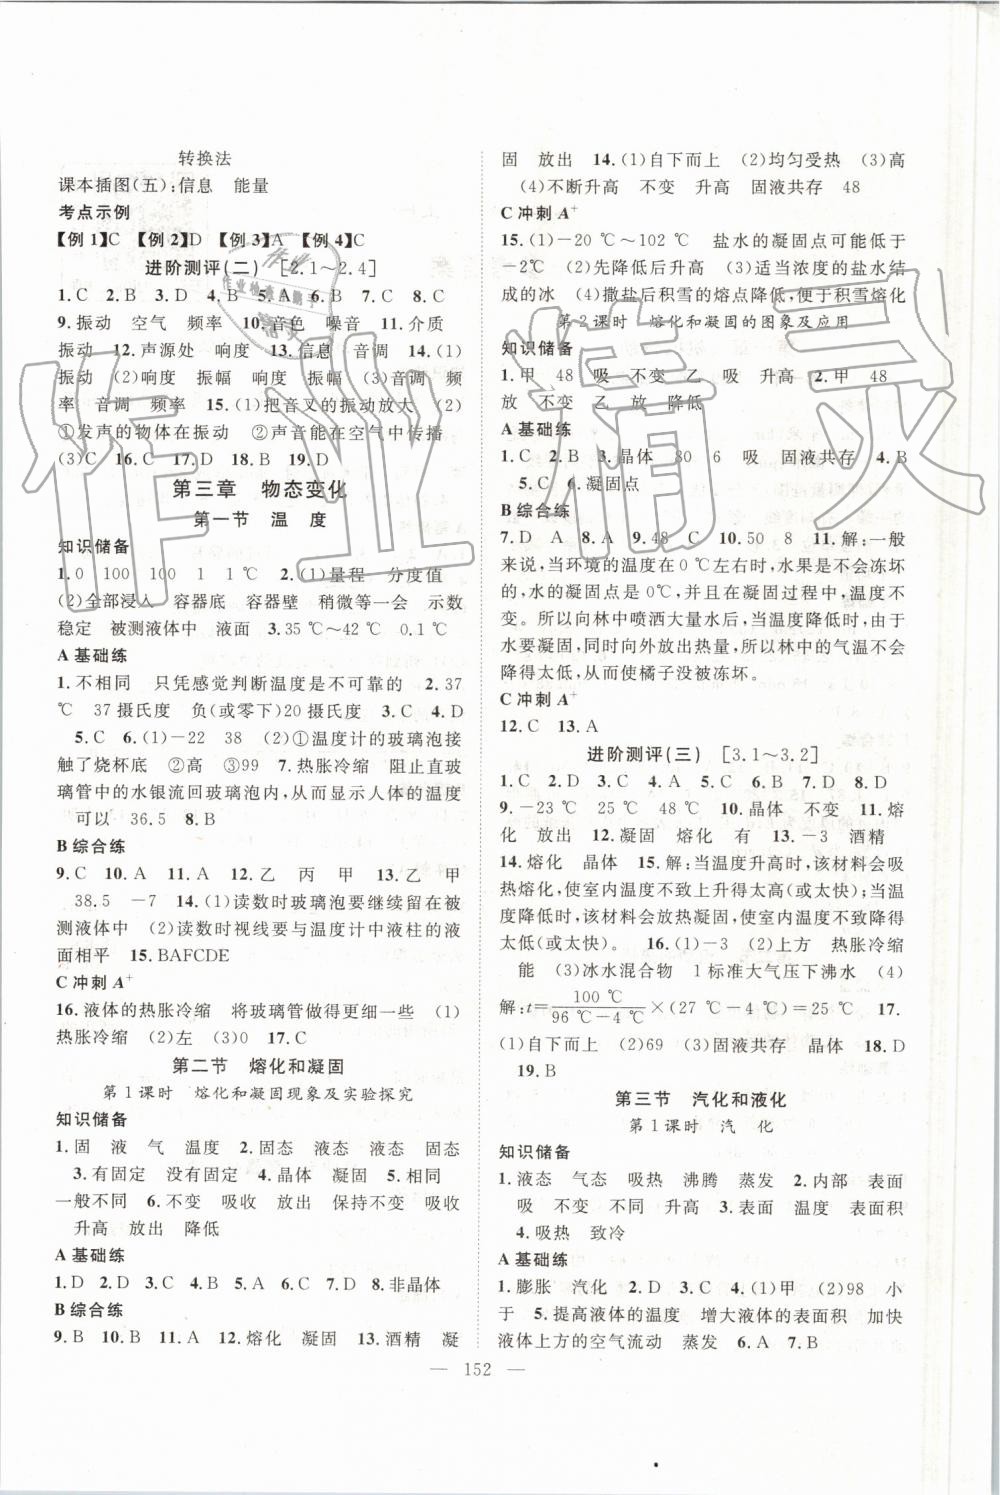 转换法
课本插图(五):信息　能量
考点示例
【例1】C　【例2】D　【例3】A　【例4】C
进阶测评(二)　[2.1～2.4]
1.C　2.B　3.D　4.B　5.A　6.B　7.B　8.C
9.振动　空气　频率　10.音色　噪音　11.介质
振动　12.声源处　响度　13.信息　音调　14.(1)
振动　(2)响度　振幅　响度　振幅　(3)音调　频
率　音调　频率　15.(1)把音叉的振动放大　(2)
①发声的物体在振动　②声音能在空气中传播
(3)C　16.C　17.D　18.B　19.D
第三章　物态变化
第一节　温　度
知识储备
1.0　100　100　1　1 ℃　2.(1)量程　分度值
(2)全部浸入　容器底　容器壁　稍微等一会　示数
稳定　被测液体中　液面　3.35 ℃～42 ℃　0.1 ℃
A 基础练
1.不相同　只凭感觉判断温度是不可靠的　2.37
℃　37摄氏度　负(或零下)20摄氏度　3.C　4.D
5.C　6.(1)－22　38　(2)①温度计的玻璃泡接
触了烧杯底　②高　③99　7.热胀冷缩　阻止直玻
璃管中的水银流回玻璃泡内,从而显示人体的温度
可以　36.5　8.B
B 综合练
9.C　10.A　11.A　12.乙　丙　甲　13.乙　甲
38.5　－7　14.(1)读数时玻璃泡要继续留在被
测液体中　(2)读数时视线要与温度计中液柱的液
面相平　15.BAFCDE
C 冲刺 A⁺
16.液体的热胀冷缩　将玻璃管做得更细一些　(1)
热胀冷缩　(2)左　(3)0　17.C
第二节　熔化和凝固
第1课时　熔化和凝固现象及实验探究
知识储备
1.固　液　气　温度　2.固态　液态　液态　固态
3.有固定　没有固定　4.晶体　凝固　5.相同
一般不同　6.不变　吸收　放出　保持不变　吸收
升高　放出　降低
A 基础练
1.D　2.D　3.C　4.D　5.A　6.C　7.D　8.非晶体
B 综合练
9.B　10.B　11.A　12.熔化　凝固　13.酒精　凝
固　放出　14.(1)自下而上　(2)均匀受热　(3)高
(4)不断升高　不变　升高　固液共存　48
C 冲刺 A⁺
15.(1)－20 ℃～102 ℃　盐水的凝固点可能低于
－2℃　(2)先降低后升高　(3)适当浓度的盐水结
成的冰　(4)撒盐后积雪的熔点降低,便于积雪熔化
第2课时　熔化和凝固的图象及应用
知识储备
1.甲　48　吸　不变　乙　吸　升高　2.甲　48
放　不变　乙　放　降低
A 基础练
1.C　2.B　3.晶体　80　6　吸　固液共存　4.B
5.C　6.凝固点
B 综合练
7.D　A　8.A　9.48　C　10.50　8　11.解:一般
来说,当环境的温度在0 ℃左右时,水果是不会冻坏
的,水的凝固点是0 ℃,并且在凝固过程中,温度不
变。所以向林中喷洒大量水后,当温度降低时,由于
水要凝固,同时向外放出热量,所以林中的气温不会
降得太低,从而使橘子没被冻坏。
C 冲刺 A⁺
12.C　13.A
进阶测评(三)　[3.1～3.2]
1.C　2.D　3.D　4.C　5.C　6.B　7.D　8.D
9.－23 ℃　25 ℃　48 ℃　10.晶体　不变　11.熔
化　放出　12.凝固　熔化　有　13.－3　酒精
14.熔化　晶体　15.解:当温度升高时,该材料会吸
热熔化,使室内温度不致上升得太高(或太快);当温
度降低时,该材料会放热凝固,使室内温度不致降得
太低(或太快)。　16.(1)－3　(2)上方　热胀冷缩
能　(3)冰水混合物　1标准大气压下沸水　(4)
解:t＝100 ℃/(96 ℃－4 ℃)×(27 ℃－4 ℃)＝25 ℃　17.
(1)自下而上　(2)69　(3)固液共存　晶体　18.D
19.B
第三节　汽化和液化
第1课时　汽　化
知识储备
1.液态　气态　吸热　沸腾　蒸发　2.内部　表面
吸　不变　不同　升高　3.表面　温度　表面积
4.吸热　致冷
A 基础练
1.膨胀　汽化　2.D　3.C　4.(1)甲　(2)98　小
于　5.提高液体的温度　增大液体的表面积　加快
液体上方的空气流动　蒸发　6.A　7.B
— 152 —
作业精灵